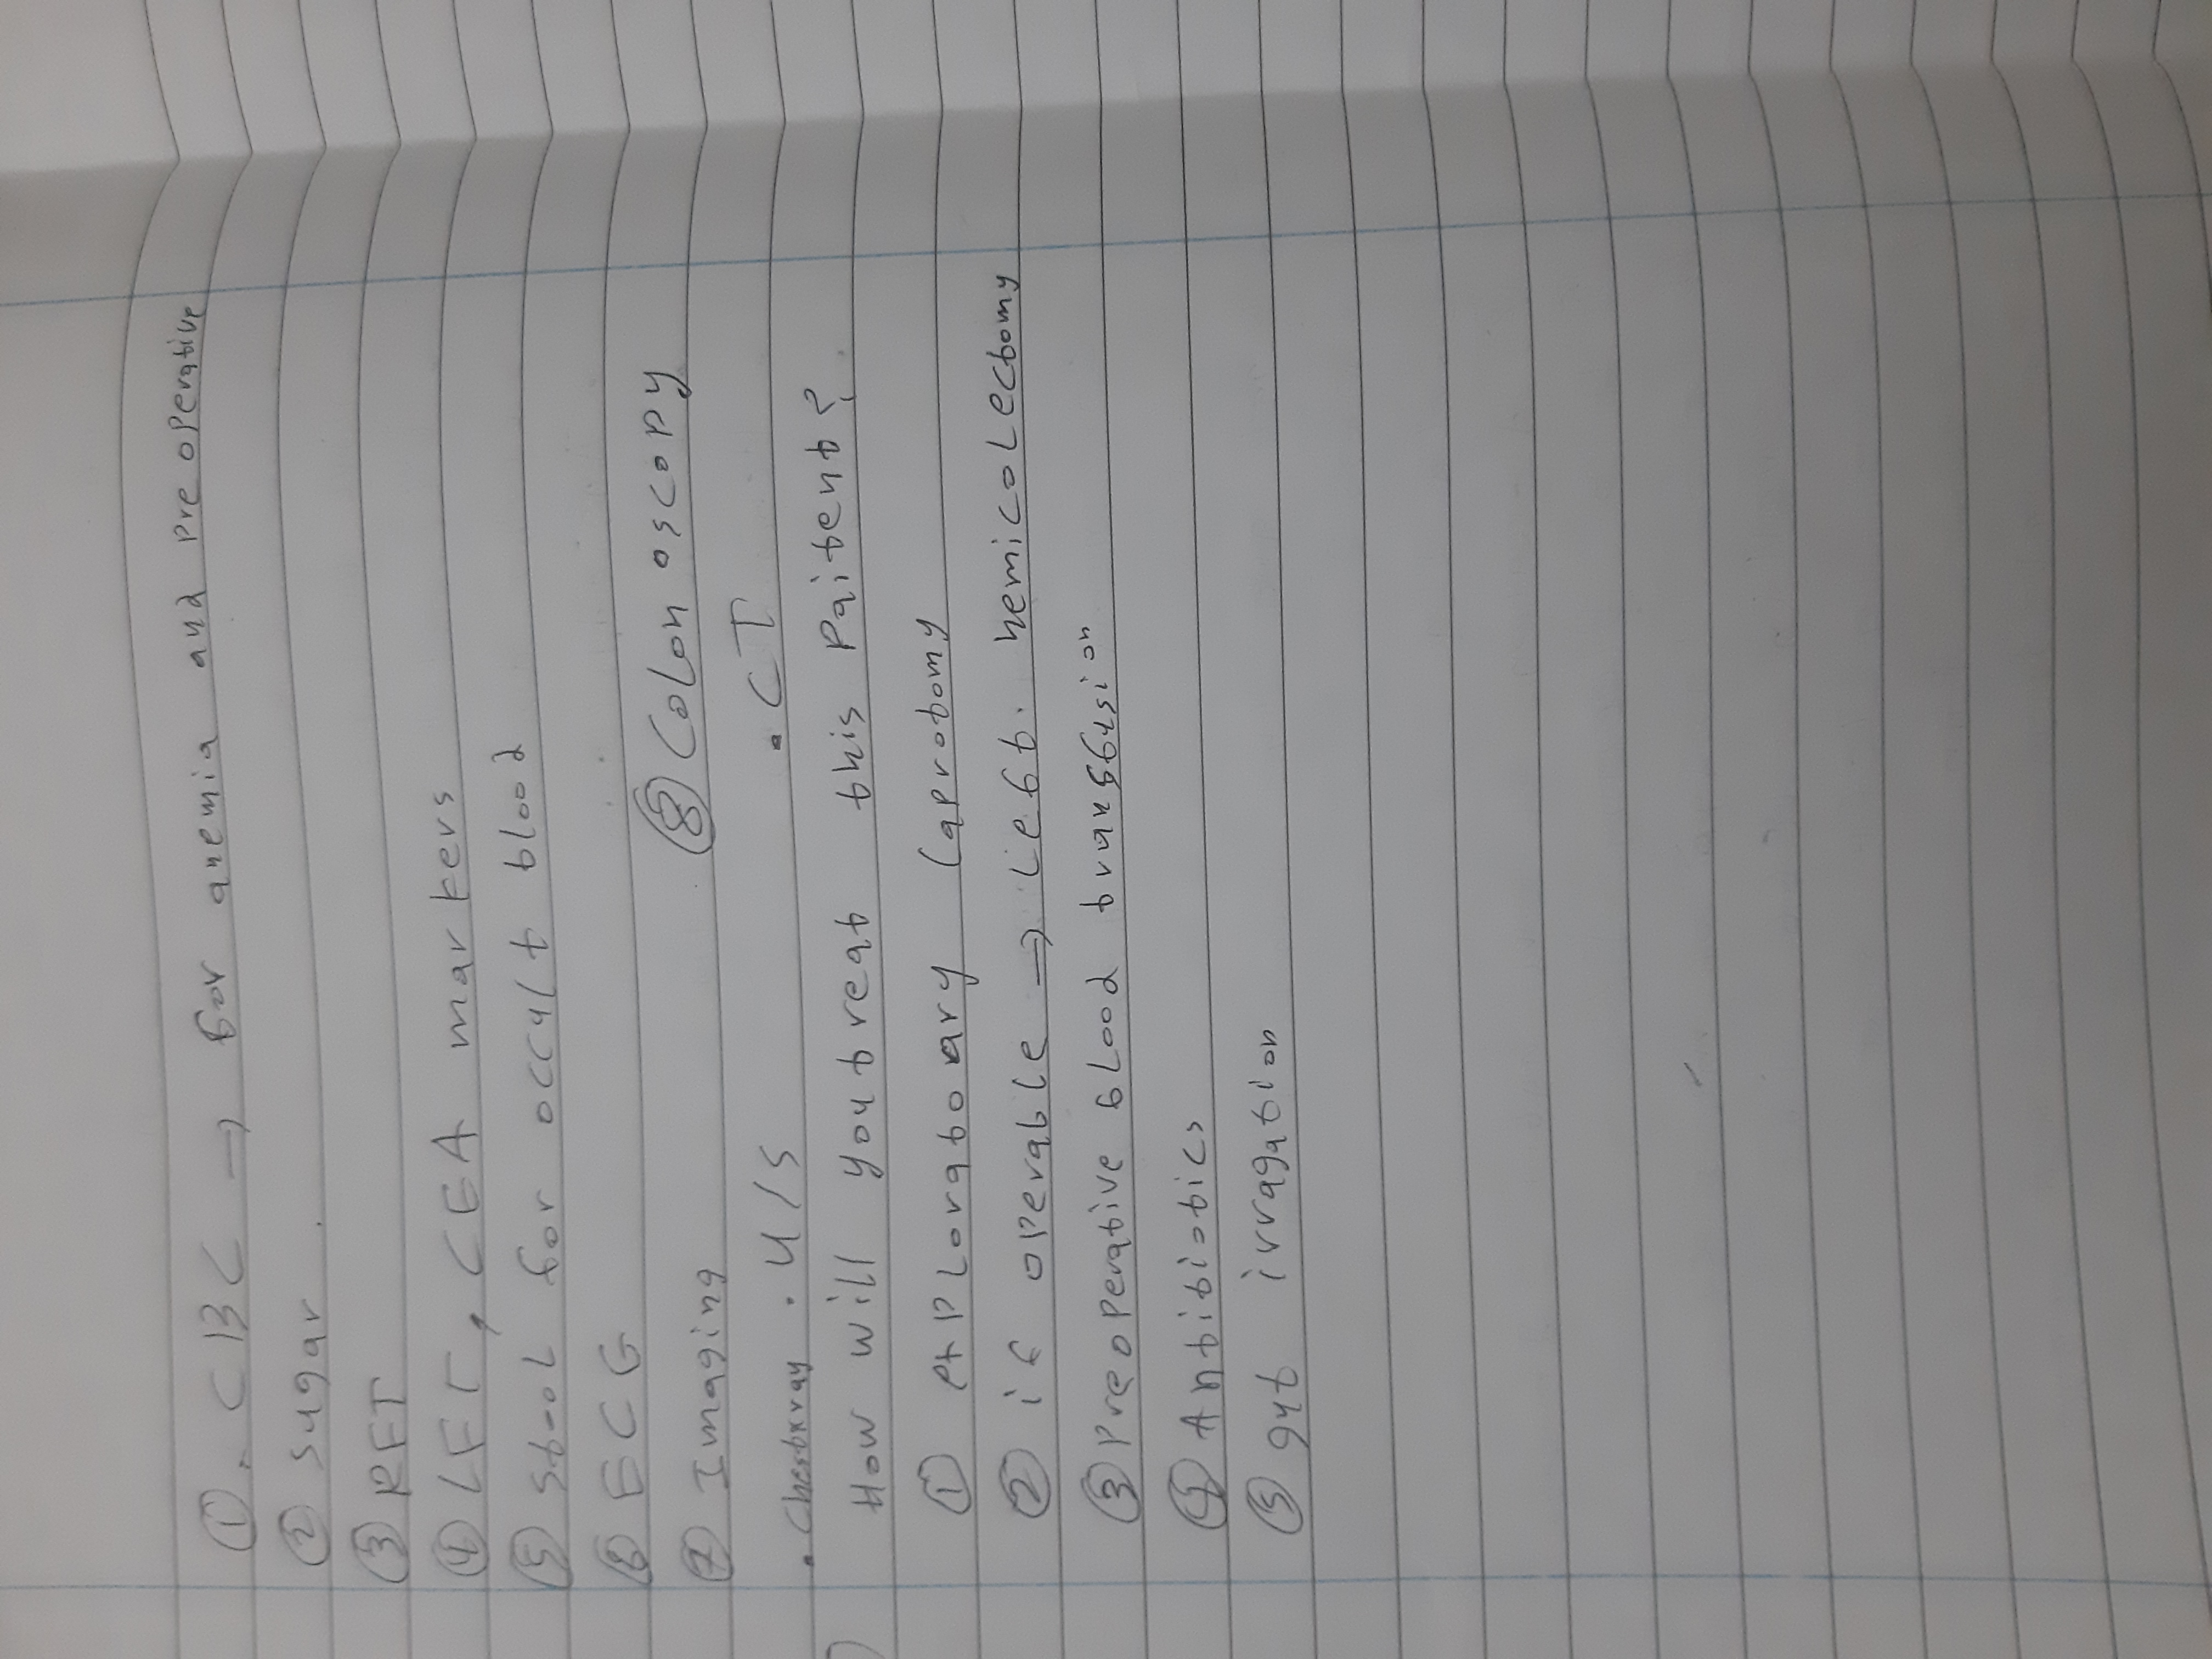 ①. CBC → for anemia and preoperative
② sugar.
③ RFT
④ LFT, CEA markers
⑤ stool for occult blood
⑥ ECG
⑦ Imaging ⑧ Colonoscopy
. Chestxray . U/S . CT
How will you treat this paitent?
① exploratoary laprotomy
② if operable → Left. hemicolectomy
③ preoperative blood transfusion
④ Antibiotics
⑤ gut irragation